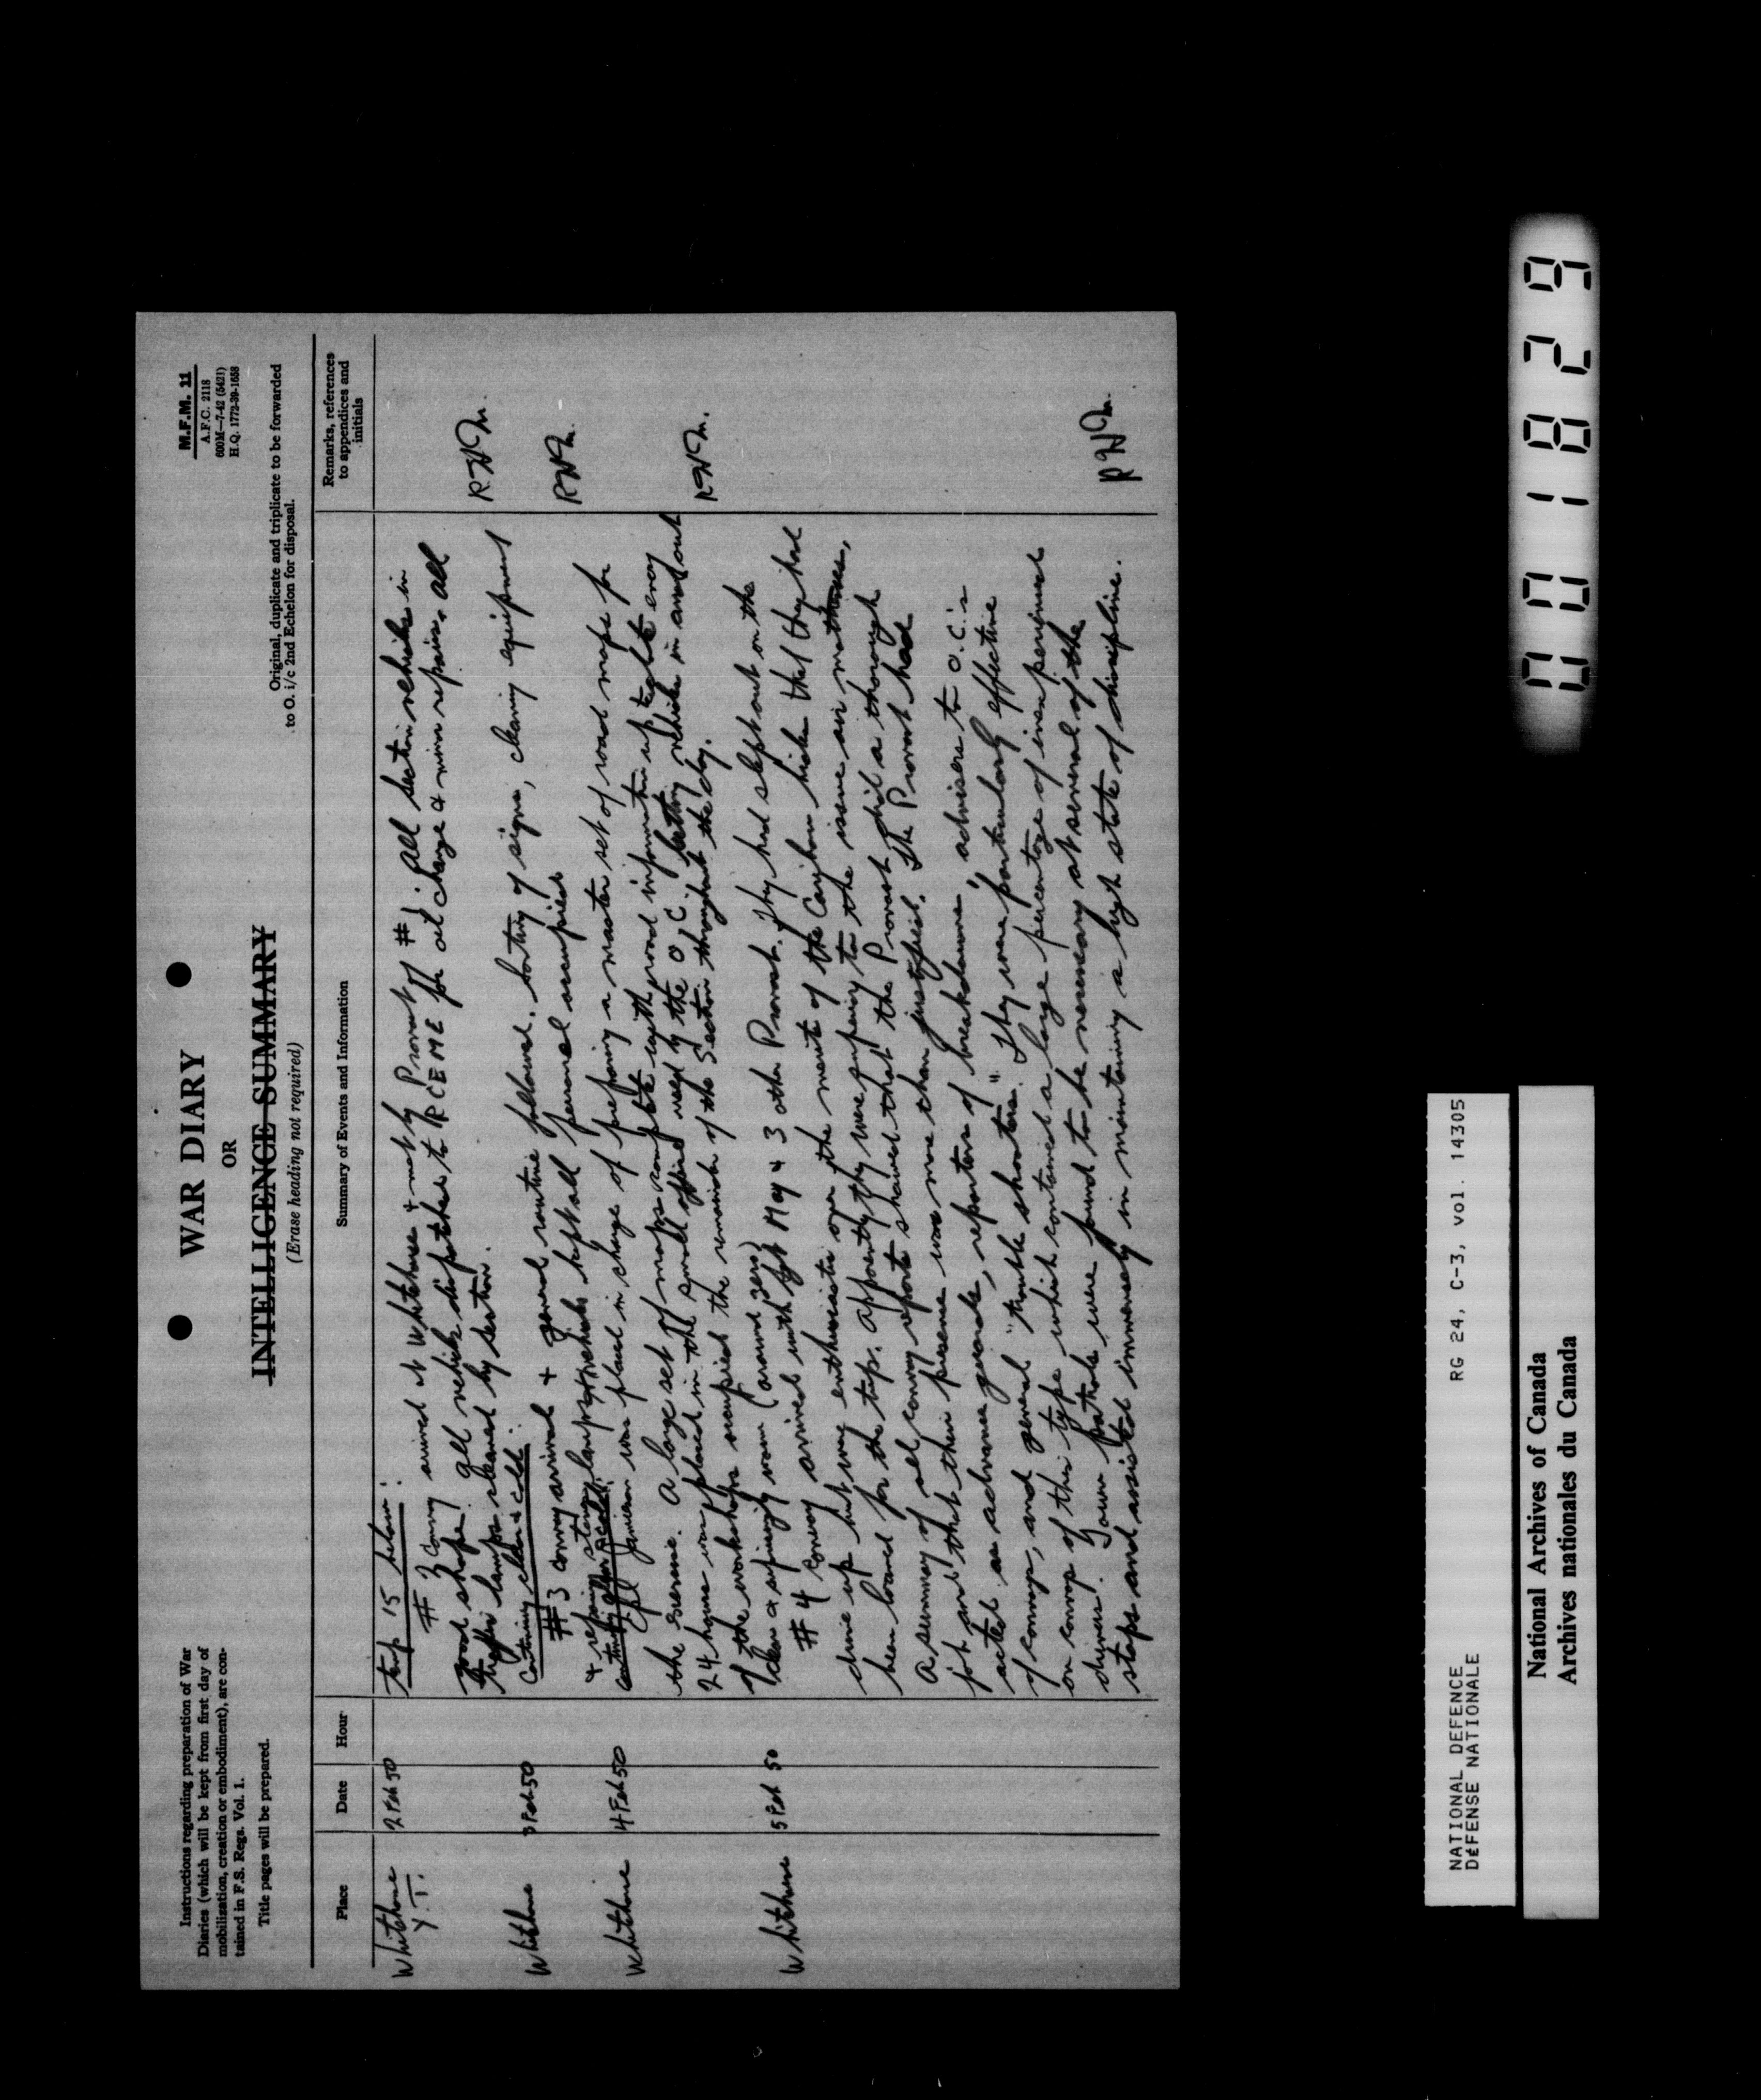 Instructions regarding preparation of War
Diaries (which will be kept from first day of
mobilization, creation or embodiment), are con-
tained in F.S. Regs. Vol. 1.
Title pages will be prepared.
WAR DIARY
OR
INTELLIGENCE SUMMARY
(Erase heading not required)
M.F.M. 11
A.F.C. 2118
600M—7-42 (5421)
H.Q. 1772-39-1658
Original, duplicate and triplicate to be forwarded
to O. i/c 2nd Echelon for disposal.
Place Date Hour Summary of Events and Information Remarks, references
to appendices and
initials
Whitehorse 2 Feb 50 Temp 15 below:
Y.T. # 2 convoy arrived at Whitehorse & met by Provost of #1. All section vehicles in
good shape. All vehicles dispatched to RCEME for oil change & minor repairs. All
traffic lamps cleaned by section. RHM.
Whitehorse 3 Feb 50 Continuing clear & cold.
#3 convoy arrived & general routine followed. Sorting of signs, cleaning equipment
& repairing lamps & vehicles kept all personnel occupied RHM.
Whitehorse 4 Feb 50 Continuing clear & cold.
Cpl was placed in charge of preparing a master set of road maps for
the exercise. A large set of maps complete with road information up to date every
24 hours was placed in the small office used by the O.C. Getting vehicles in and out
of the workshops occupied the remainder of the Section throughout the day. RHM.
Whitehorse 5 Feb 50 Clear & warm (around zero)
# 4 convoy arrived with Sgt May & 3 other Provost. They had slept out on the
drive up but very enthusiastic over the merits of the Caribou hides that they had
been loaned for the trip. Apparently they were superior to the issue air mattresses.
A summary of all convoy reports showed that the Provost did a thorough
job and that their presence was more than justified. The Provost had
acted as advance guards, reporters of breakdowns, advisers to O.C.'s
of convoys, and general "trouble shooters". They were particularly effective
on convoys of this type which contained a large percentage of inexperienced
drivers. Town patrols were found to be necessary at several of the
stops and assisted immensely in maintaining a high state of discipline. RHM.
NATIONAL DEFENCE RG 24, C-3, vol. 14305
DÉFENSE NATIONALE
National Archives of Canada
Archives nationales du Canada
001829